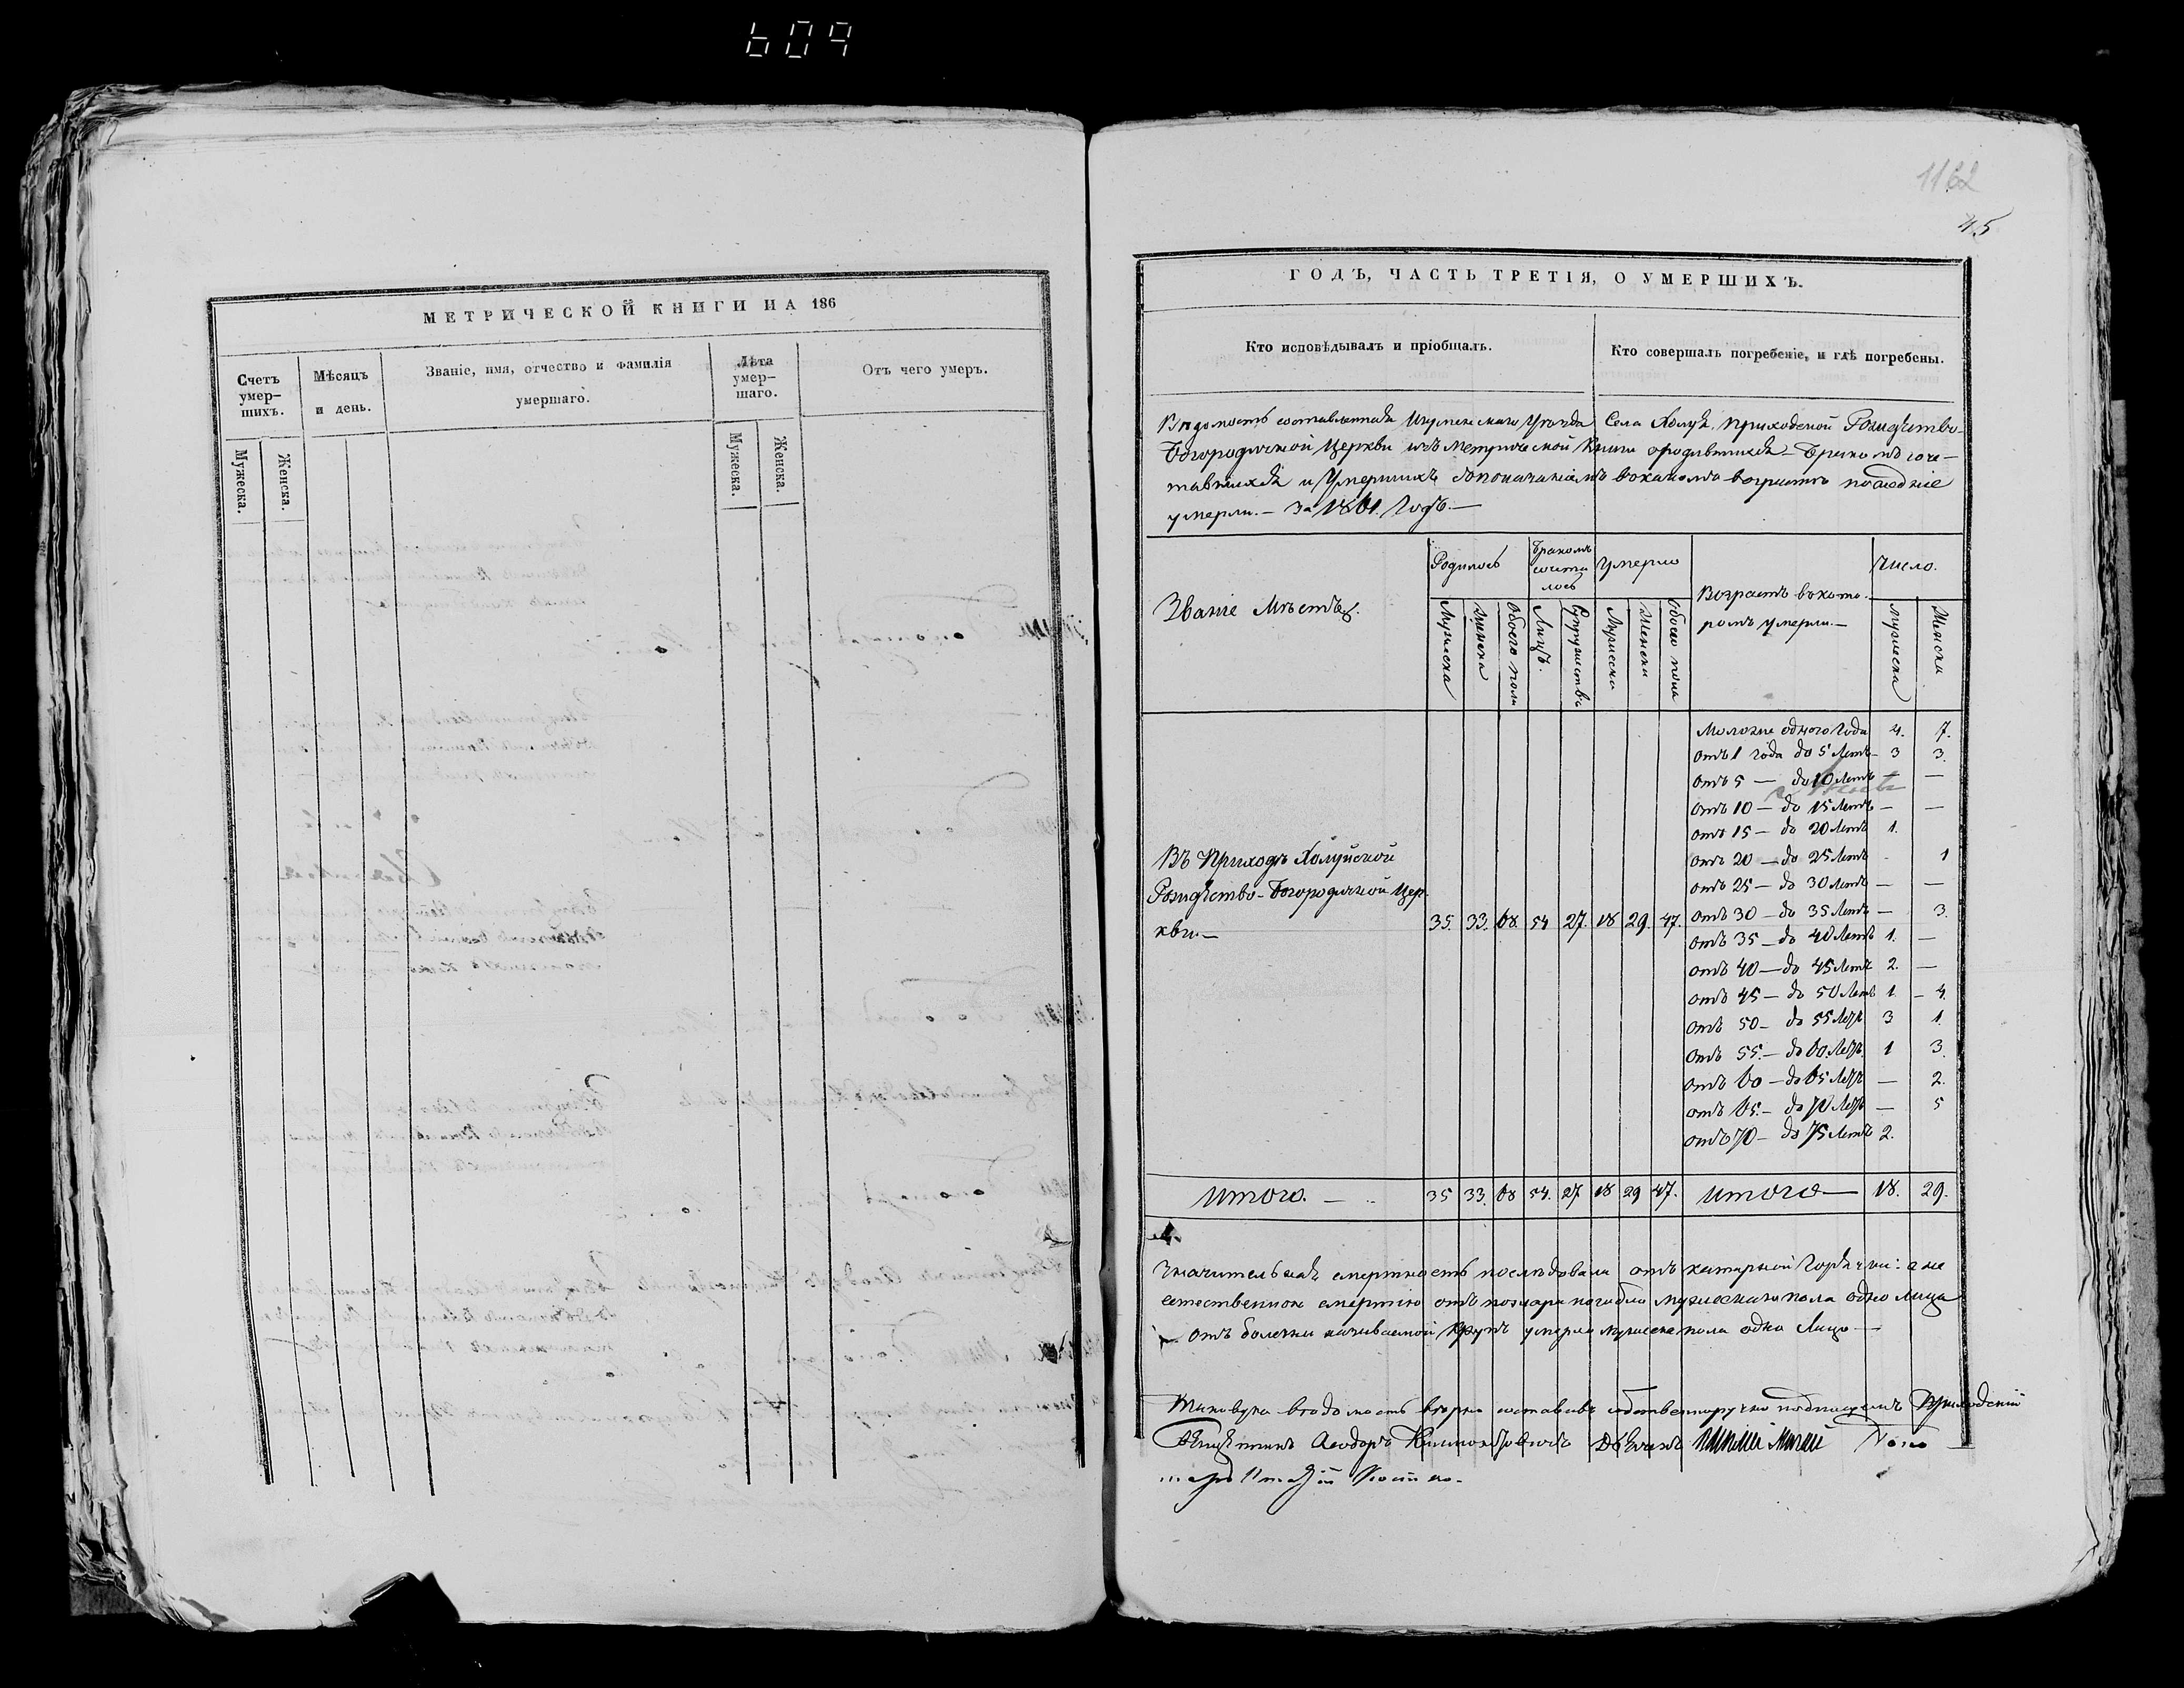 609
1162
45
МЕТРИЧЕСКОЙ КНИГИ НА 186
Счетъ умер-шихъ.
Мужеска.
Женска.
Мѣсяцъ и день.
Званіе, имя, отчество и фамилія умершаго.
Лѣта умер-шаго.
Мужеска.
Женска.
Отъ чего умеръ.
ГОДЪ, ЧАСТЬ ТРЕТІЯ, О УМЕРШИХЪ.
Кто исповѣдывалъ и пріобщалъ.
Кто совершалъ погребеніе, и гдѣ погребены.
Вѣдомость составленная Игуменскаго Уѣзда Села Холуя, Приходской Рождество-
Богородичной Церкви изъ Метрической Книги о родившихся Бракомъ соче-
тавшихся и Умершихъ съ показаніемъ въ какомъ возрастѣ последніе
умерли. — За 1861. Годъ. —
Званіе Мѣстъ.
Родилось
Мужеска
Женска
Обоего пола
Бракомъ сочета лось
Лицъ.
Супружествъ
Умерло
Мужеска
Женска
Обоего пола
Возрастъ въ кото-
ромъ умерли. —
Число.
Мужеска
Женска
Моложе одного Года 4. 7.
Отъ 1 года до 5 Летъ — 3 3.
Отъ 5 — до 10 Летъ — —
Отъ 10 — до 15 Летъ — —
Отъ 15 — до 20 Летъ 1.
Отъ 20 — до 25 Летъ - 1
Отъ 25 — до 30 Летъ — —
Отъ 30 — до 35 Летъ — 3.
Отъ 35 — до 40 Летъ 1. —
Отъ 40 — до 45 Летъ 2. —
Отъ 45 — до 50 Летъ 1. — 4.
Отъ 50 — до 55 Летъ 3 1.
Отъ 55. — до 60. Летъ. 1 3.
Отъ 60 — до 65 Летъ — 2.
Отъ 65. — до 70 Летъ — 5
Отъ 70 — до 75 Летъ 2.
Въ Приходѣ Холуйской
Рождество-Богородичной Цер-
кви — 35. 33. 68. 54 27. 18 29. 47.
Итого. — 35 33. 68 54. 27 18 29 47. Итого — 18. 29.
Значительная смертность последовала отъ катарной Горячки: а не
естественною смертію отъ пожара погибло мужескаго пола одно Лице
отъ болезни называемой Крупъ умерло мужеска пола одно Лицо —
Таковую вѣдомость вѣрно составивъ собственноручно подписуемъ Приходскій
Священникъ Ѳеодоръ Дьячокъ Поно
марь